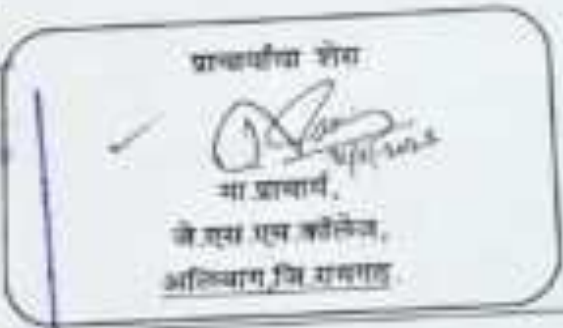 प्राचार्यांचा शेरा
मा.प्राचार्य,
जे.एस.एम.कॉलेज,
अलिबाग,जि.रायगड.